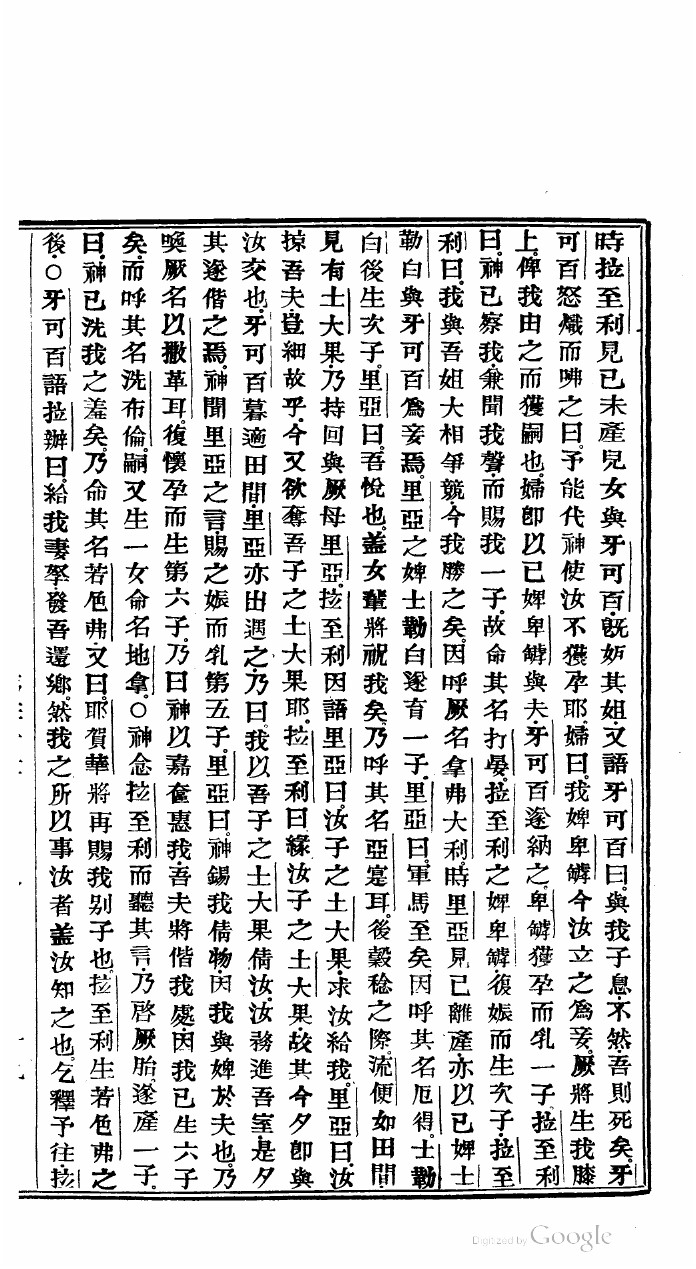 時拉至利見已未產兒女與牙可百旣妒其姐又語牙可百曰與我子息不然吾則死矣牙
可百怒熾而咈之曰予能代神使汝不獲孕耶婦曰我婢卑罅今汝立之為妾厥將生我膝
上俾我由之而獲嗣也婦卽以已婢卑罅與夫牙可百遂納之卑罅獲孕而乳一子拉至利
曰神已察我兼聞我聲而賜我一子故命其名打晏拉至利之婢卑罅復娠而生次子拉至
利曰我與吾姐大相爭競今我勝之矣因呼厥名拿弗大利時里亞見已離產亦以已婢士
勒白與牙可百為妾焉里亞之婢士勒白遂育一子里亞曰軍馬至矣因呼其名厄得士勒
白後生次子里亞曰吾悅也蓋女輩將祝我矣乃呼其名亞寔耳後穀稔之際流便如田間
見有土大果乃持回與厥母里亞拉至利因語里亞曰汝子之土大果求汝給我里亞曰汝
掠吾夫豈細故乎今又欲奪吾子之土大果耶拉至利曰緣汝子之土大果故其今夕卽與
汝交也牙可百暮適田間里亞亦出遇之乃曰我以吾子之土大果倩汝汝務進吾室是夕
其遂偕之焉神聞里亞之言賜之娠而乳第五子里亞曰神錫我倩物因我與婢於夫也乃
喚厥名以撒革耳復懷孕而生第六子乃曰神以嘉奩惠我吾夫將偕我處因我已生六子
矣而呼其名洗布倫嗣又生一女命名地拿○神念拉至利而聽其言乃啓厥胎遂產一子
曰神已洗我之羞矣乃命其名若色弗又曰耶賀華將再賜我别子也拉至利生若色弗之
後○牙可百語拉辦曰給我妻孥發吾還鄉然我之所以事汝者蓋汝知之也乞釋予往拉
Digitized by Google